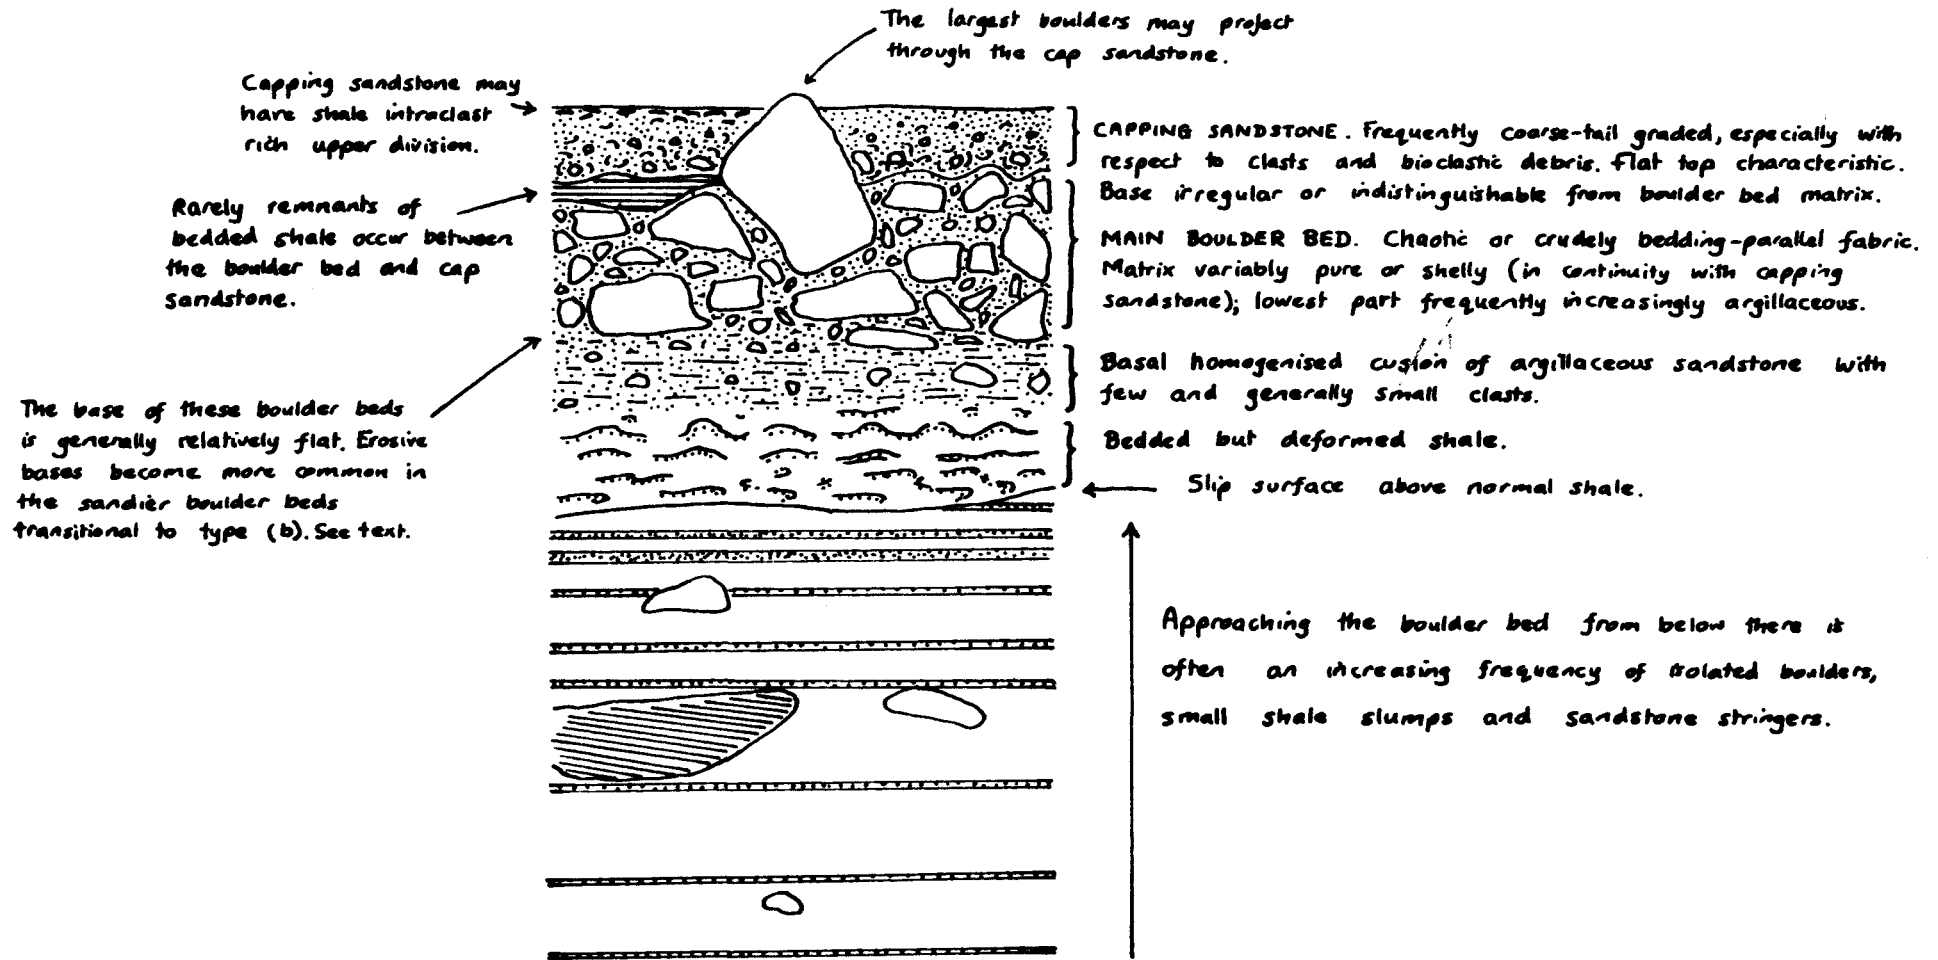 The largest boulders may project
through the cap sandstone.
Capping sandstone may
have shale intraclast
rich upper division.
Rarely remnants of
bedded shale occur between
the boulder bed and cap
sandstone.
The base of these boulder beds
is generally relatively flat. Erosive
bases become more common in
the sandier boulder beds
transitional to type (b). See text.
CAPPING SANDSTONE. Frequently coarse-tail graded, especially with
respect to clasts and bioclastic debris. Flat top characteristic.
Base irregular or indistinguishable from boulder bed matrix.
MAIN BOULDER BED. Chaotic or crudely bedding-parallel fabric.
Matrix variably pure or shelly (in continuity with capping
sandstone); lowest part frequently increasingly argillaceous.
Basal homogenised cusion of argillaceous sandstone with
few and generally small clasts.
Bedded but deformed shale.
Slip surface above normal shale.
Approaching the boulder bed from below there is
often an increasing frequency of isolated boulders,
small shale slumps and sandstone stringers.